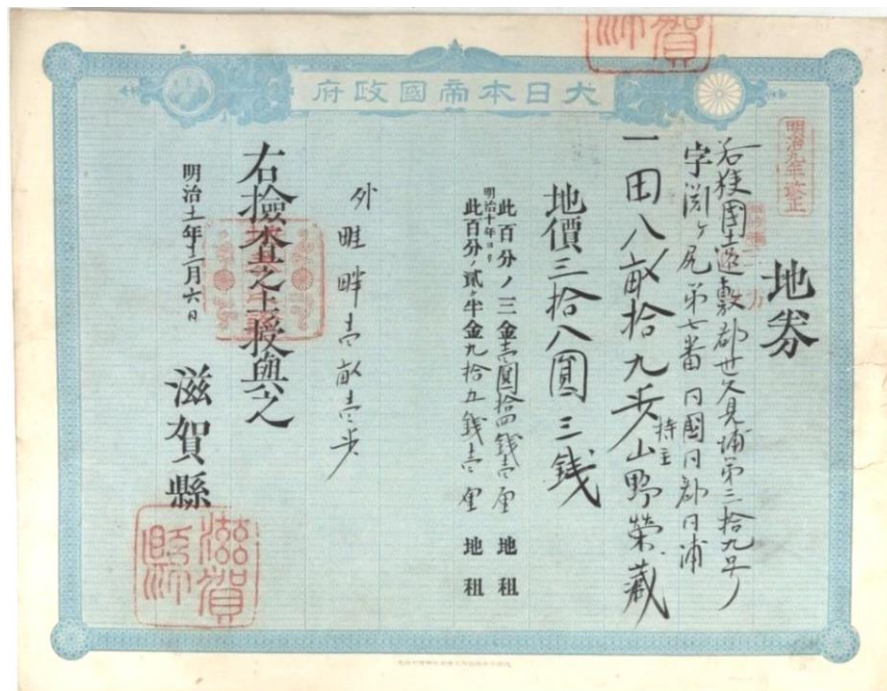 大日本帝國政府
明治九年改正
地券
若狹國遠敷郡世久見浦第三拾九号
字渕ヶ尻第七番 同國同郡同浦
一田八畝拾九歩 持主 山野榮藏
地價三拾八圓三銭
此百分ノ三金壹圓拾四銭壹厘 地租
明治十年ヨリ
此百分ノ貳ヶ半金九拾五銭壹厘 地租
外 畦畔壹畝壹歩
右撿査之上授與之
明治十一年十二月六日
滋賀縣
滋賀縣